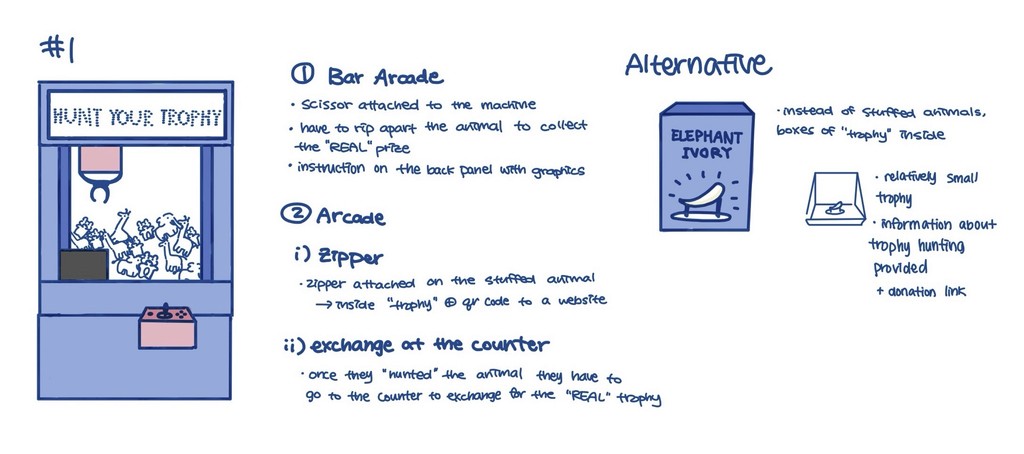 #1
HUNT YOUR TROPHY
① Bar Arcade
• Scissor attached to the machine
• have to rip apart the animal to collect
the "REAL" prize
• instruction on the back panel with graphics
② Arcade
i) Zipper
• zipper attached on the stuffed animal
→ inside "trophy" ⊕ qr code to a website
ii) exchange at the counter
• once they "hunted" the animal they have to
go to the counter to exchange for the "REAL" trophy
Alternative
ELEPHANT
IVORY
• instead of stuffed animals,
boxes of "trophy" inside
• relatively small
trophy
• information about
trophy hunting
provided
+ donation link